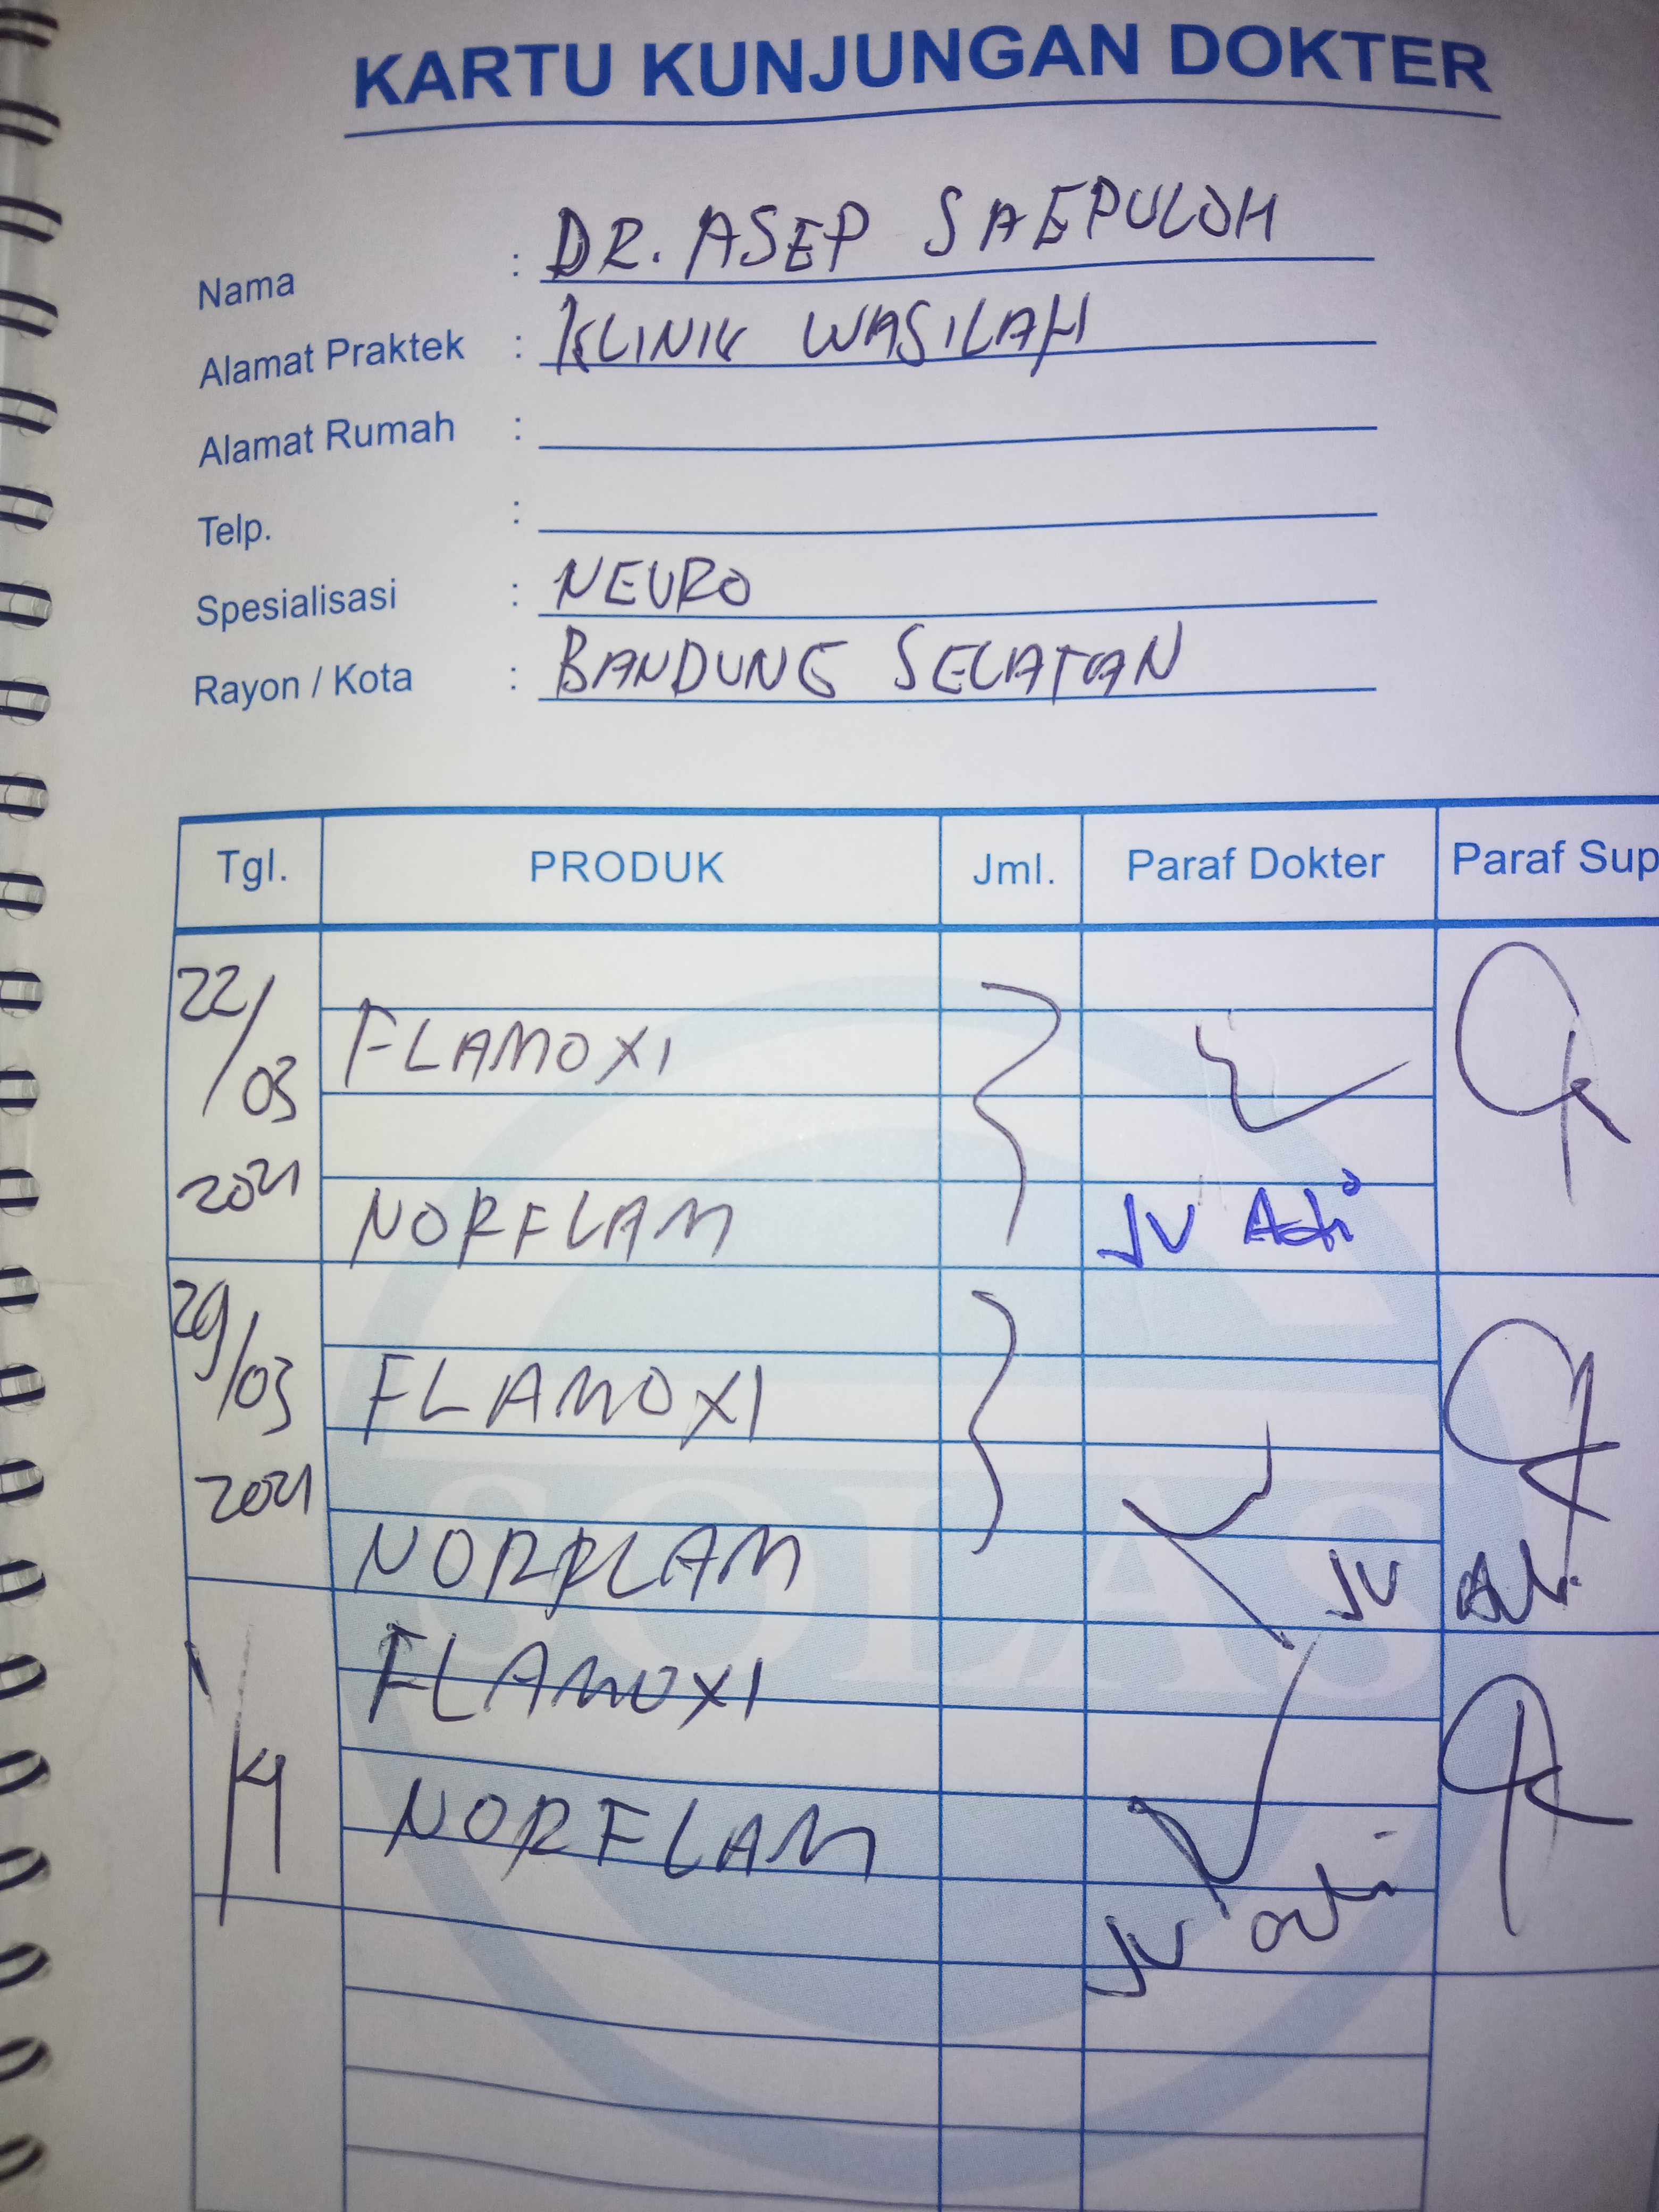 KARTU KUNJUNGAN DOKTER
Nama : DR. ASEP SAEPULOH
Alamat Praktek : KLINIK WASILAH
Alamat Rumah :
Telp. :
Spesialisasi : NEURO
Rayon / Kota : BANDUNG SELATAN
Tgl. PRODUK Jml. Paraf Dokter Paraf Sup
22/03 FLAMOXI
2021 NORFLAM JV
29/03 FLAMOXI
2021 NORFLAM JV
FLAMOXI
NORFLAM
JV
SOLAS